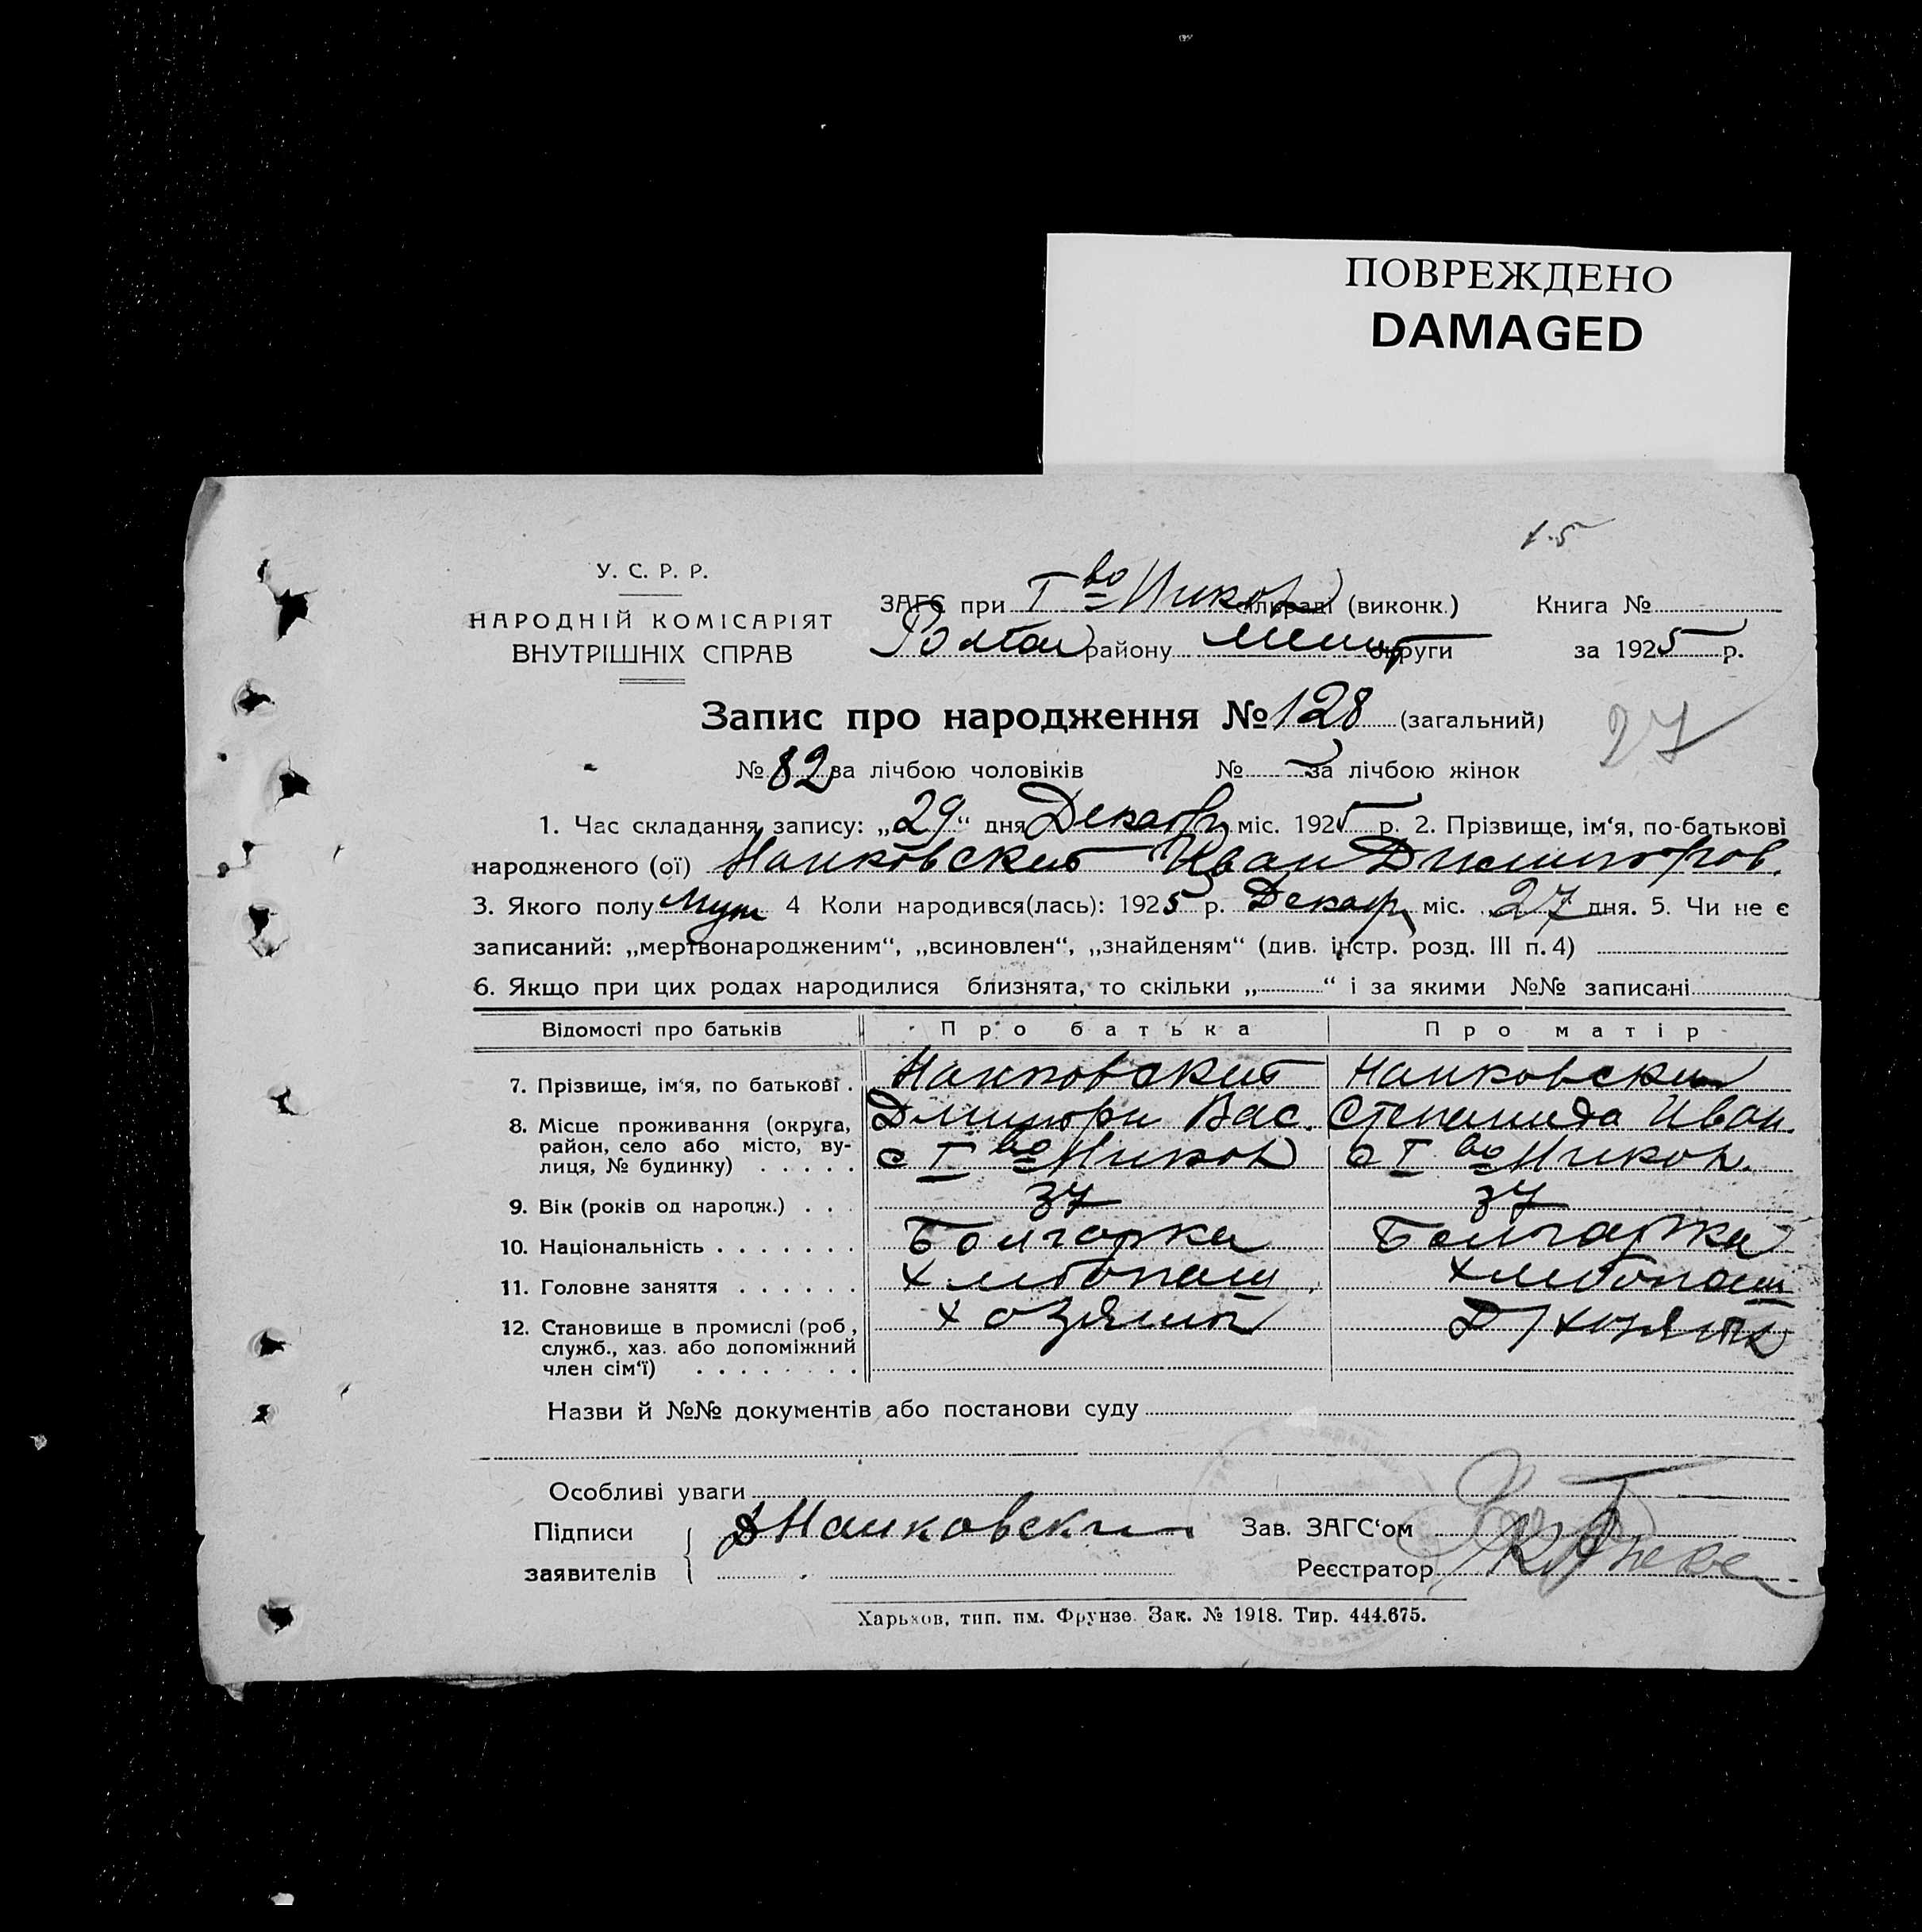 ПОВРЕЖДЕНО
DAMAGED
1.5
У. С. Р. Р.
НАРОДНІЙ КОМІСАРІЯТ
ВНУТРІШНІХ СПРАВ
ЗАГС при I во Никол сільраді (виконк.) Книга №
району округи за 1925 р.
Запис про народження № 128 (загальний)
27
№ 82 за лічбою чоловіків № за лічбою жінок
1. Час складання запису: „29“ дня Декабр міс. 1925 р. 2. Прізвище, ім‘я, по-батькові
народженого (ої) Нанковский Иван Димитров.
3. Якого полу Муж 4 Коли народився(лась): 1925 р. Декабр міс. 27 дня. 5. Чи не є
записаний: „мертвонародженим“, „всиновлен“, „знайденям“ (див. інстр. розд. III п. 4)
6. Якщо при цих родах народилися близнята, то скільки „ “ і за якими №№ записані
Відомості про батьків Про батька Про матір
7. Прізвище, ім‘я, по батькові . Нанковский Нанковская
8. Місце проживання (округа, Дмитри Вас. Степанида Иван.
район, село або місто, ву-
лиця, № будинку) . . . . . с I во Никол с I во Никол.
9. Вік (років од народж.) . . . 37 37
10. Національність . . . . . . . Болгарка Болгарка
11. Головне заняття . . . . . . хлебопаш хлебопаш
12. Становище в промислі (роб., хозяин Д/хозяик
служб., хаз. або допоміжний
член сім‘ї) . . . . . . . .
Назви й №№ документів або постанови суду
Особливі уваги
Підписи Д Нанковски Зав. ЗАГС‘ом
заявителів Реєстратор
Харьков, тип. им. Фрунзе. Зак. № 1918. Тир. 444.675.